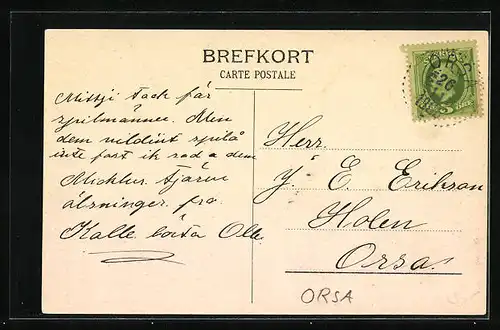 BREFKORT
CARTE POSTALE
Mittji tack får
spilmännee. Men
dem vildint spilå
inte fast ik sad a dem
Micklur. Stjärue
älsninger. fro
Kalle bósta Olle
Herr.
J. E Erikson
Holen
Orsa.
ORSA